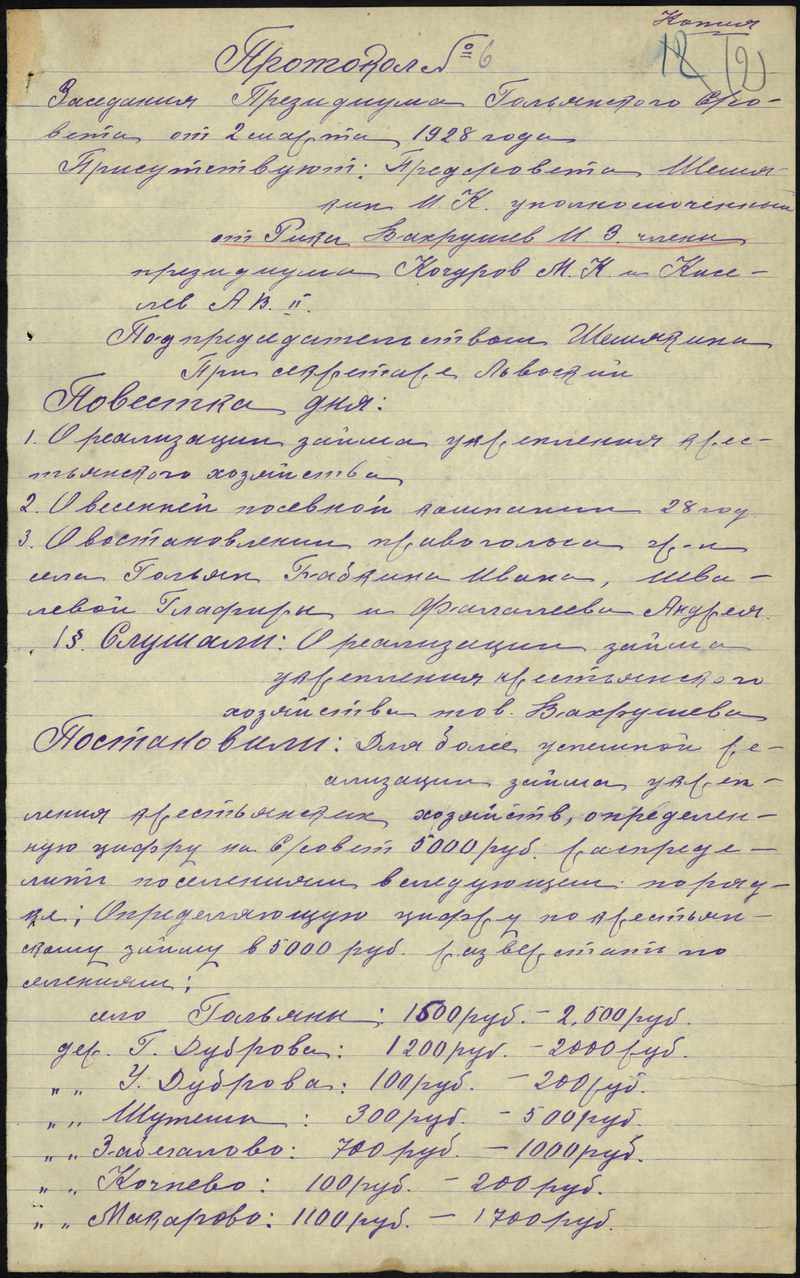 Копия
12 (2)
Протокол № 6
Заседания Президиума Гольянского с/со-
вета от 2 марта 1928 года
Присутствуют: Предсовета Шемя-
кин И. К. уполномоченный
от Рика Вахрушев И. З. члены
президиума Кочуров М. К. и Кисе-
лев А В. II.
Под председательством Шемякина
При секретаре Львоский
Повестка дня:
1. О реализации займа укрепления крес-
тьянского хозяйства
2. О весенней посевной кампании 28 год
3. О востановлении правоголоса гр-н
села Гольян Бабкина Ивана, Шва-
левой Глафиры и Фалалеева Андрея.
1§. Слушали: О реализации займа
укрепления крестьянского
хозяйства тов. Вахрушева
Постановили: Для более успешной ре-
ализации займа укреп-
ления крестьянских хозяйств, определен-
ную цифру на С/совет 5000 руб. распреде-
лить поселениям в следующем поряд-
ке; Определяющую цифру по крестьян-
скому займу в 5000 руб. разверстать по
селениям;
село Гольяны: 1500 руб. – 2.500 руб.
дер. Г. Дуброва: 1200 руб. – 2000 руб.
„ „ У. Дуброва: 100 руб. – 200 руб.
„ „ Шутеши : 300 руб. – 500 руб.
„ „ Забегалово: 700 руб. – 1000 руб.
„ „ Кочнево: 100 руб. – 200 руб.
„ „ Макарово: 1100 руб. – 1700 руб.